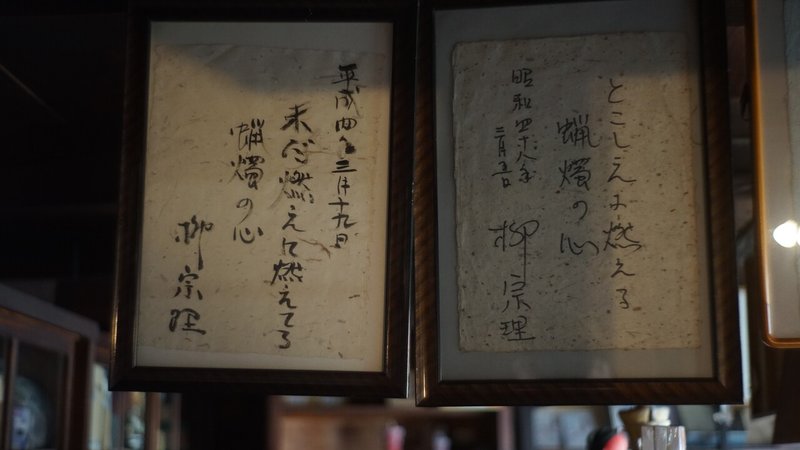 とこしえに燃える
蝋燭の心
昭和四十八年
二月五日
柳宗理
平成四年三月十九日
未だ燃えに燃えてる
蝋燭の心
柳宗理